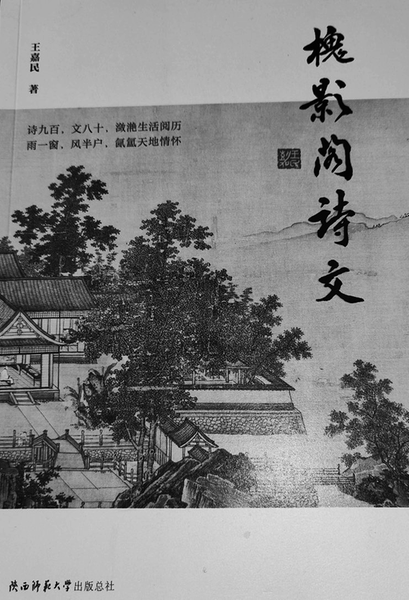 王嘉民 著
槐影阁詩文
诗九百，文八十，潋滟生活阅历
雨一窗，风半户，氤氲天地情怀
陕西师范大学出版总社